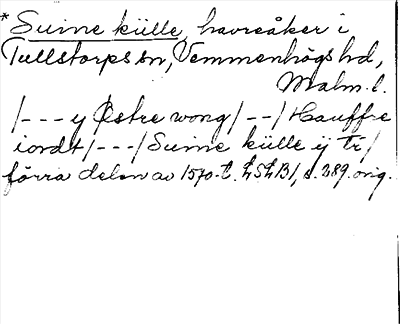 * Suine külle, havreåker i
Tullstorps sn, Vemmenhögs hd,
Malm. l.
/---y Østre wong/--/Hauffre
iordt/---/Suine külle ÿ tr/
förra delen av 1570-t. LSLB1, s. 289. orig.